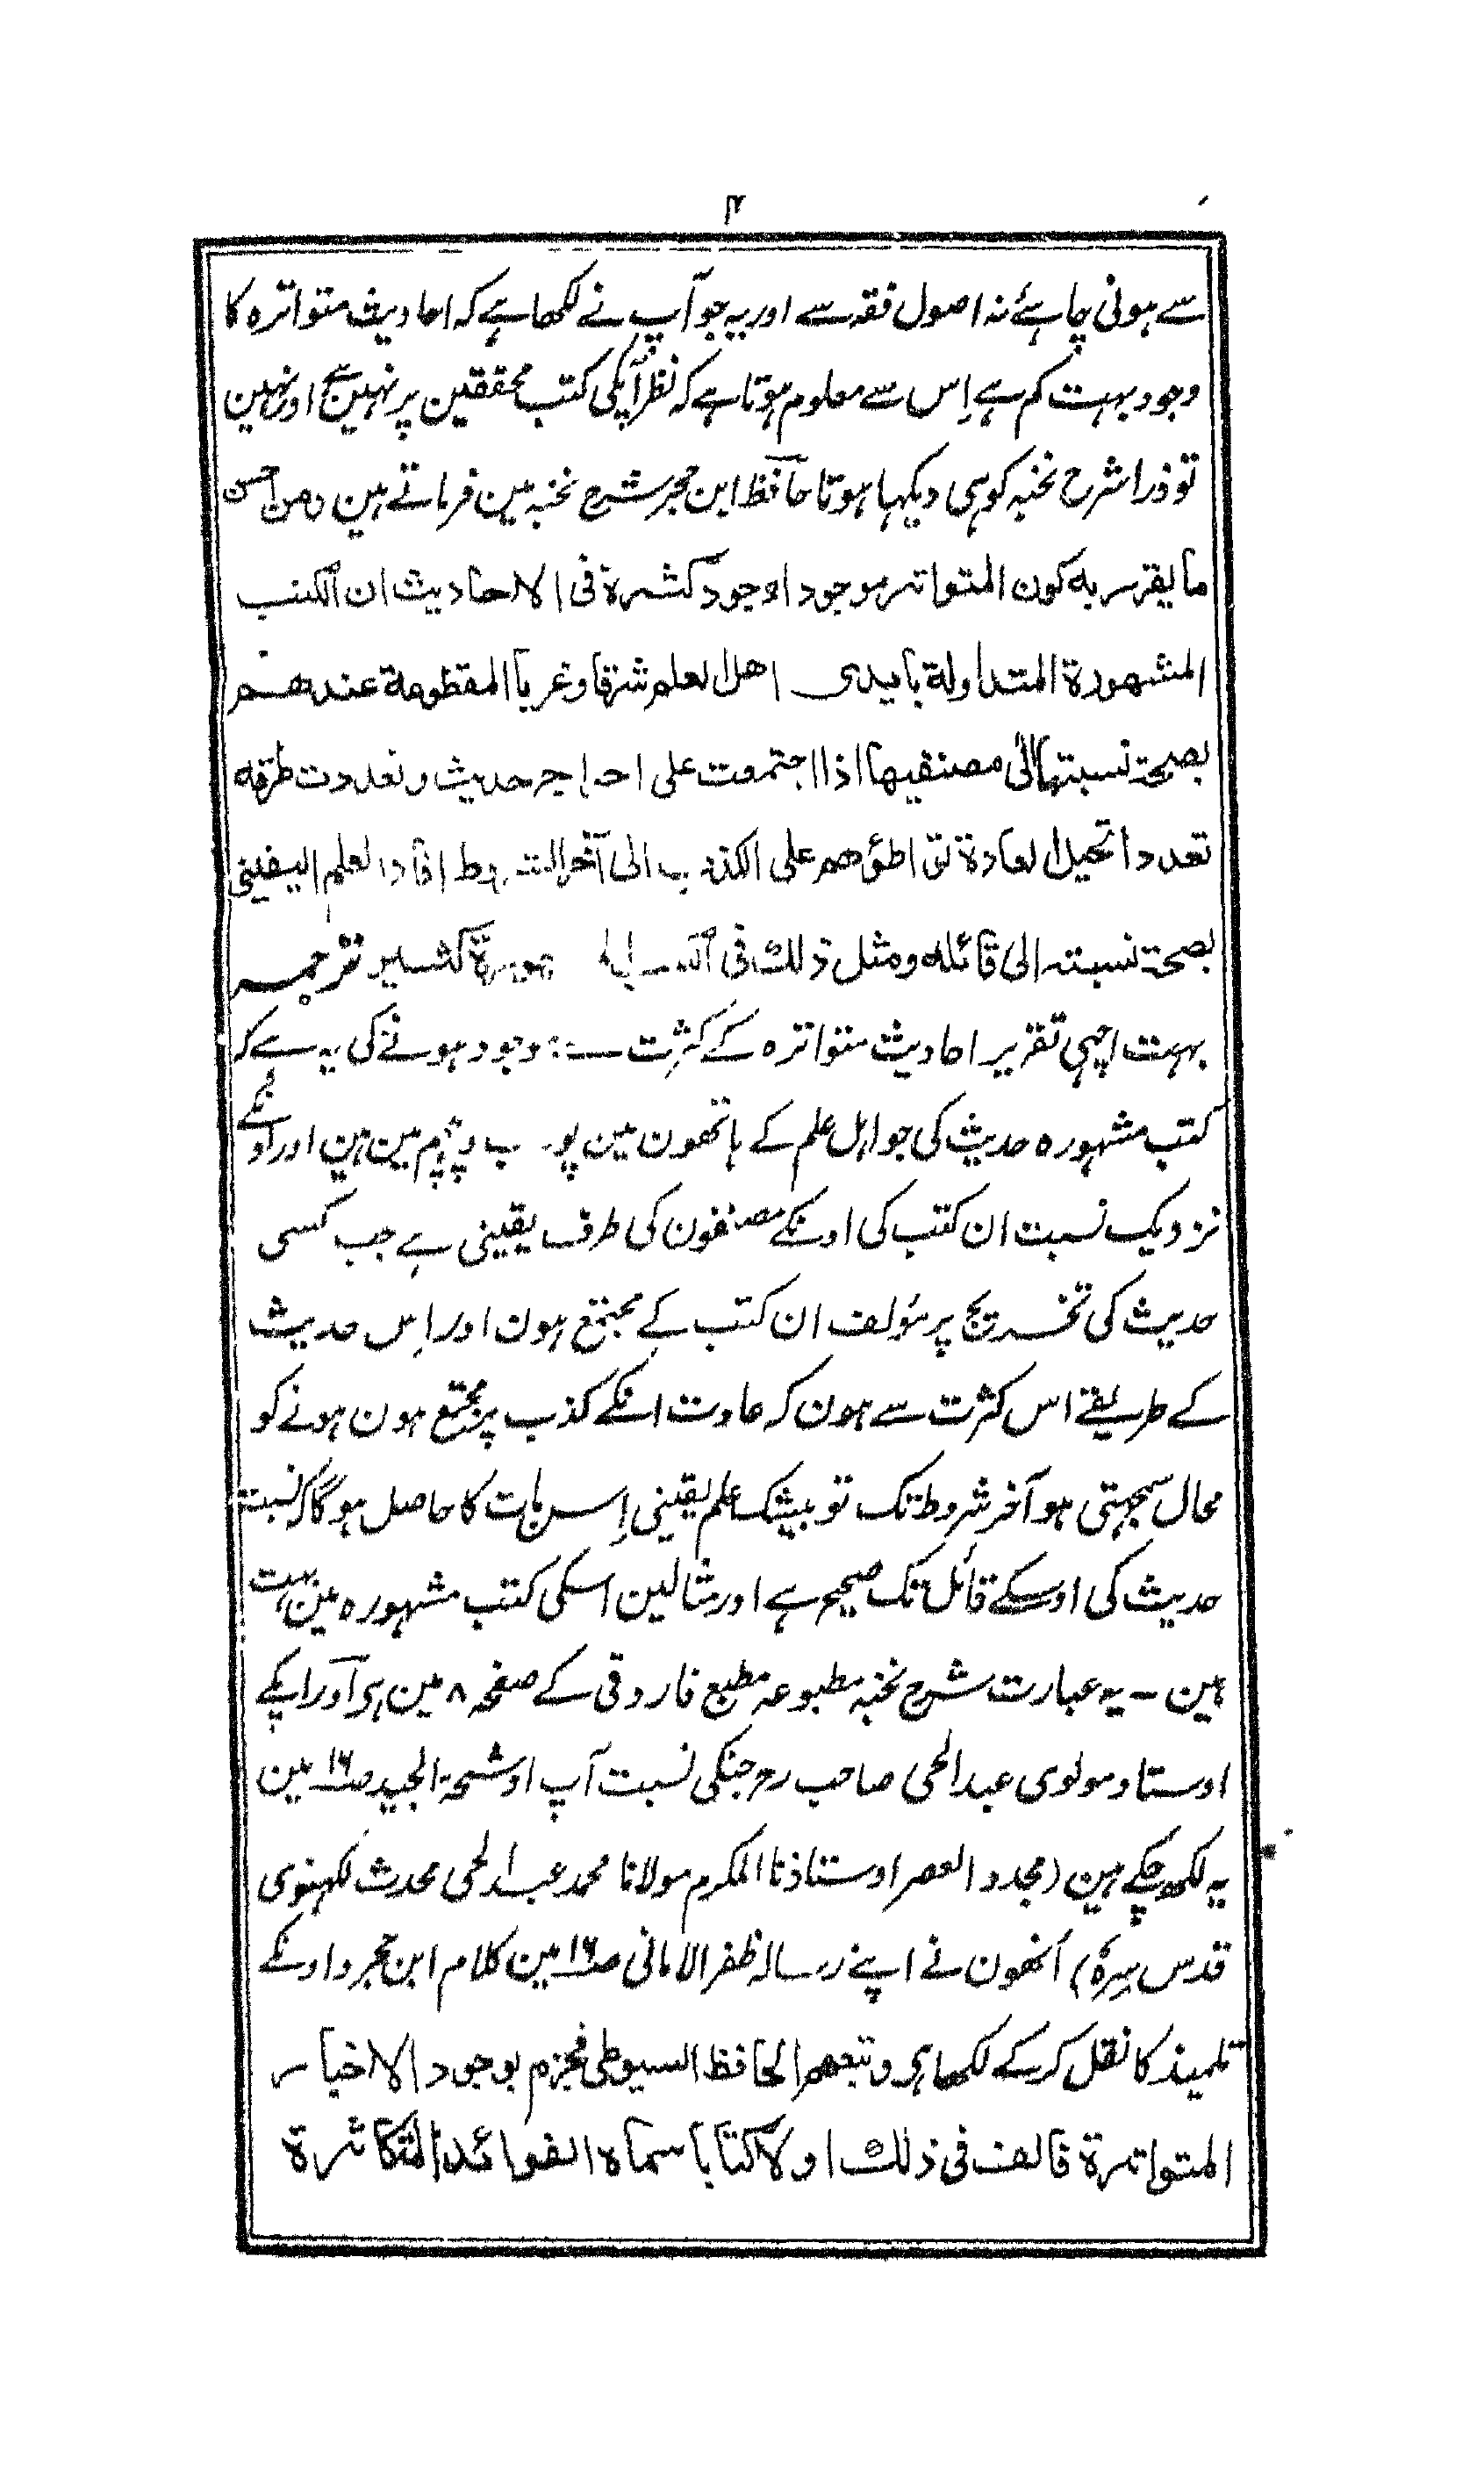 ۴
سے ہونی چاہئے نہ اصول فقہ سے اور یہ جو آپ نے لکھا ہے کہ احادیث متواترہ کا
وجود بہت کم ہے اِس سے معلوم ہوتا ہے کہ نظر آپکی کتب محققین پر نہین ہے اور نہین
تو ذرا شرح نخبہ کو ہی دیکہا ہوتا حافظ ابن حجر شرح نخبہ مین فرماتے ہین ومن احسن
ما یقرر به کون المتواتر موجودا وجود کثرة فی الاحادیث ان الکتب
المشهورة المتداولة بایدی اهل العلم شرقا وغربا المقطوعة عندهم
بصحة نسبتها الی مصنفیها اذا اجتمعت علی اخراج حدیث وتعددت طرقه
تعددا تحیل العادة تواطؤهم علی الکذب الی آخر الشروط افاد العلم الیقینی
بصحة نسبته الی قائله ومثل ذلك فی کثیر ترجمہ
بہت اچہی تقریر احادیث متواترہ کے کثرت سے وجود ہونے کی یہ ہے کہ
کتب مشہورہ حدیث کی جو اہل علم کے ہاتھون مین پورب وپچہم مین ہین اور اونکے
نزدیک نسبت ان کتب کی اونکے مصنفون کی طرف یقینی ہے جب کسی
حدیث کی تخریج پر مؤلف ان کتب کے مجتمع ہون اور اِس حدیث
کے طریقے اس کثرت سے ہون کہ عادت انکے کذب پر مجتمع ہون ہونے کو
محال سمجہتی ہو آخر شروط تک تو بیشک علم یقینی اِس بات کا حاصل ہوگا کہ نسبت
حدیث کی اوسکے قائل تک صحیح ہے اور مثالین اسکی کتب مشہورہ مین بہت
ہین - یہ عبارت شرح نخبہ مطبوعہ مطبع فاروقی کے صفحہ ۸ مین ہی اور اپکے
اوستاد مولوی عبدالحی صاحب رح جنکی نسبت آپ اوشحة الجید صـ۱۶ مین
یہ لکھ چکے ہین (مجدد العصر اوستاذنا المکرم مولانا محمد عبدالحی محدث لکہنوی
قدس سرہٗ) اُنھون نے اپنے رسالہ ظفر الامانی صـ۱۶ مین کلام ابن حجر و اونکے
تلمیذ کا نقل کرکے لکھا ہی وتبعهم الحافظ السیوطی فجزم بوجود الاخبار
المتواترة فالف فی ذلك اولا کتابا سماه الفوائد المتکاثرة